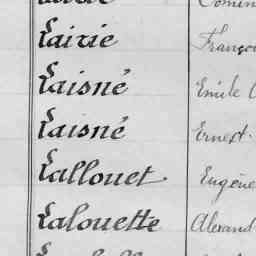 Lairie Franço
Laisné Emile
Laisné Ernest
Lallouet Eugène
Lalouette Alexand